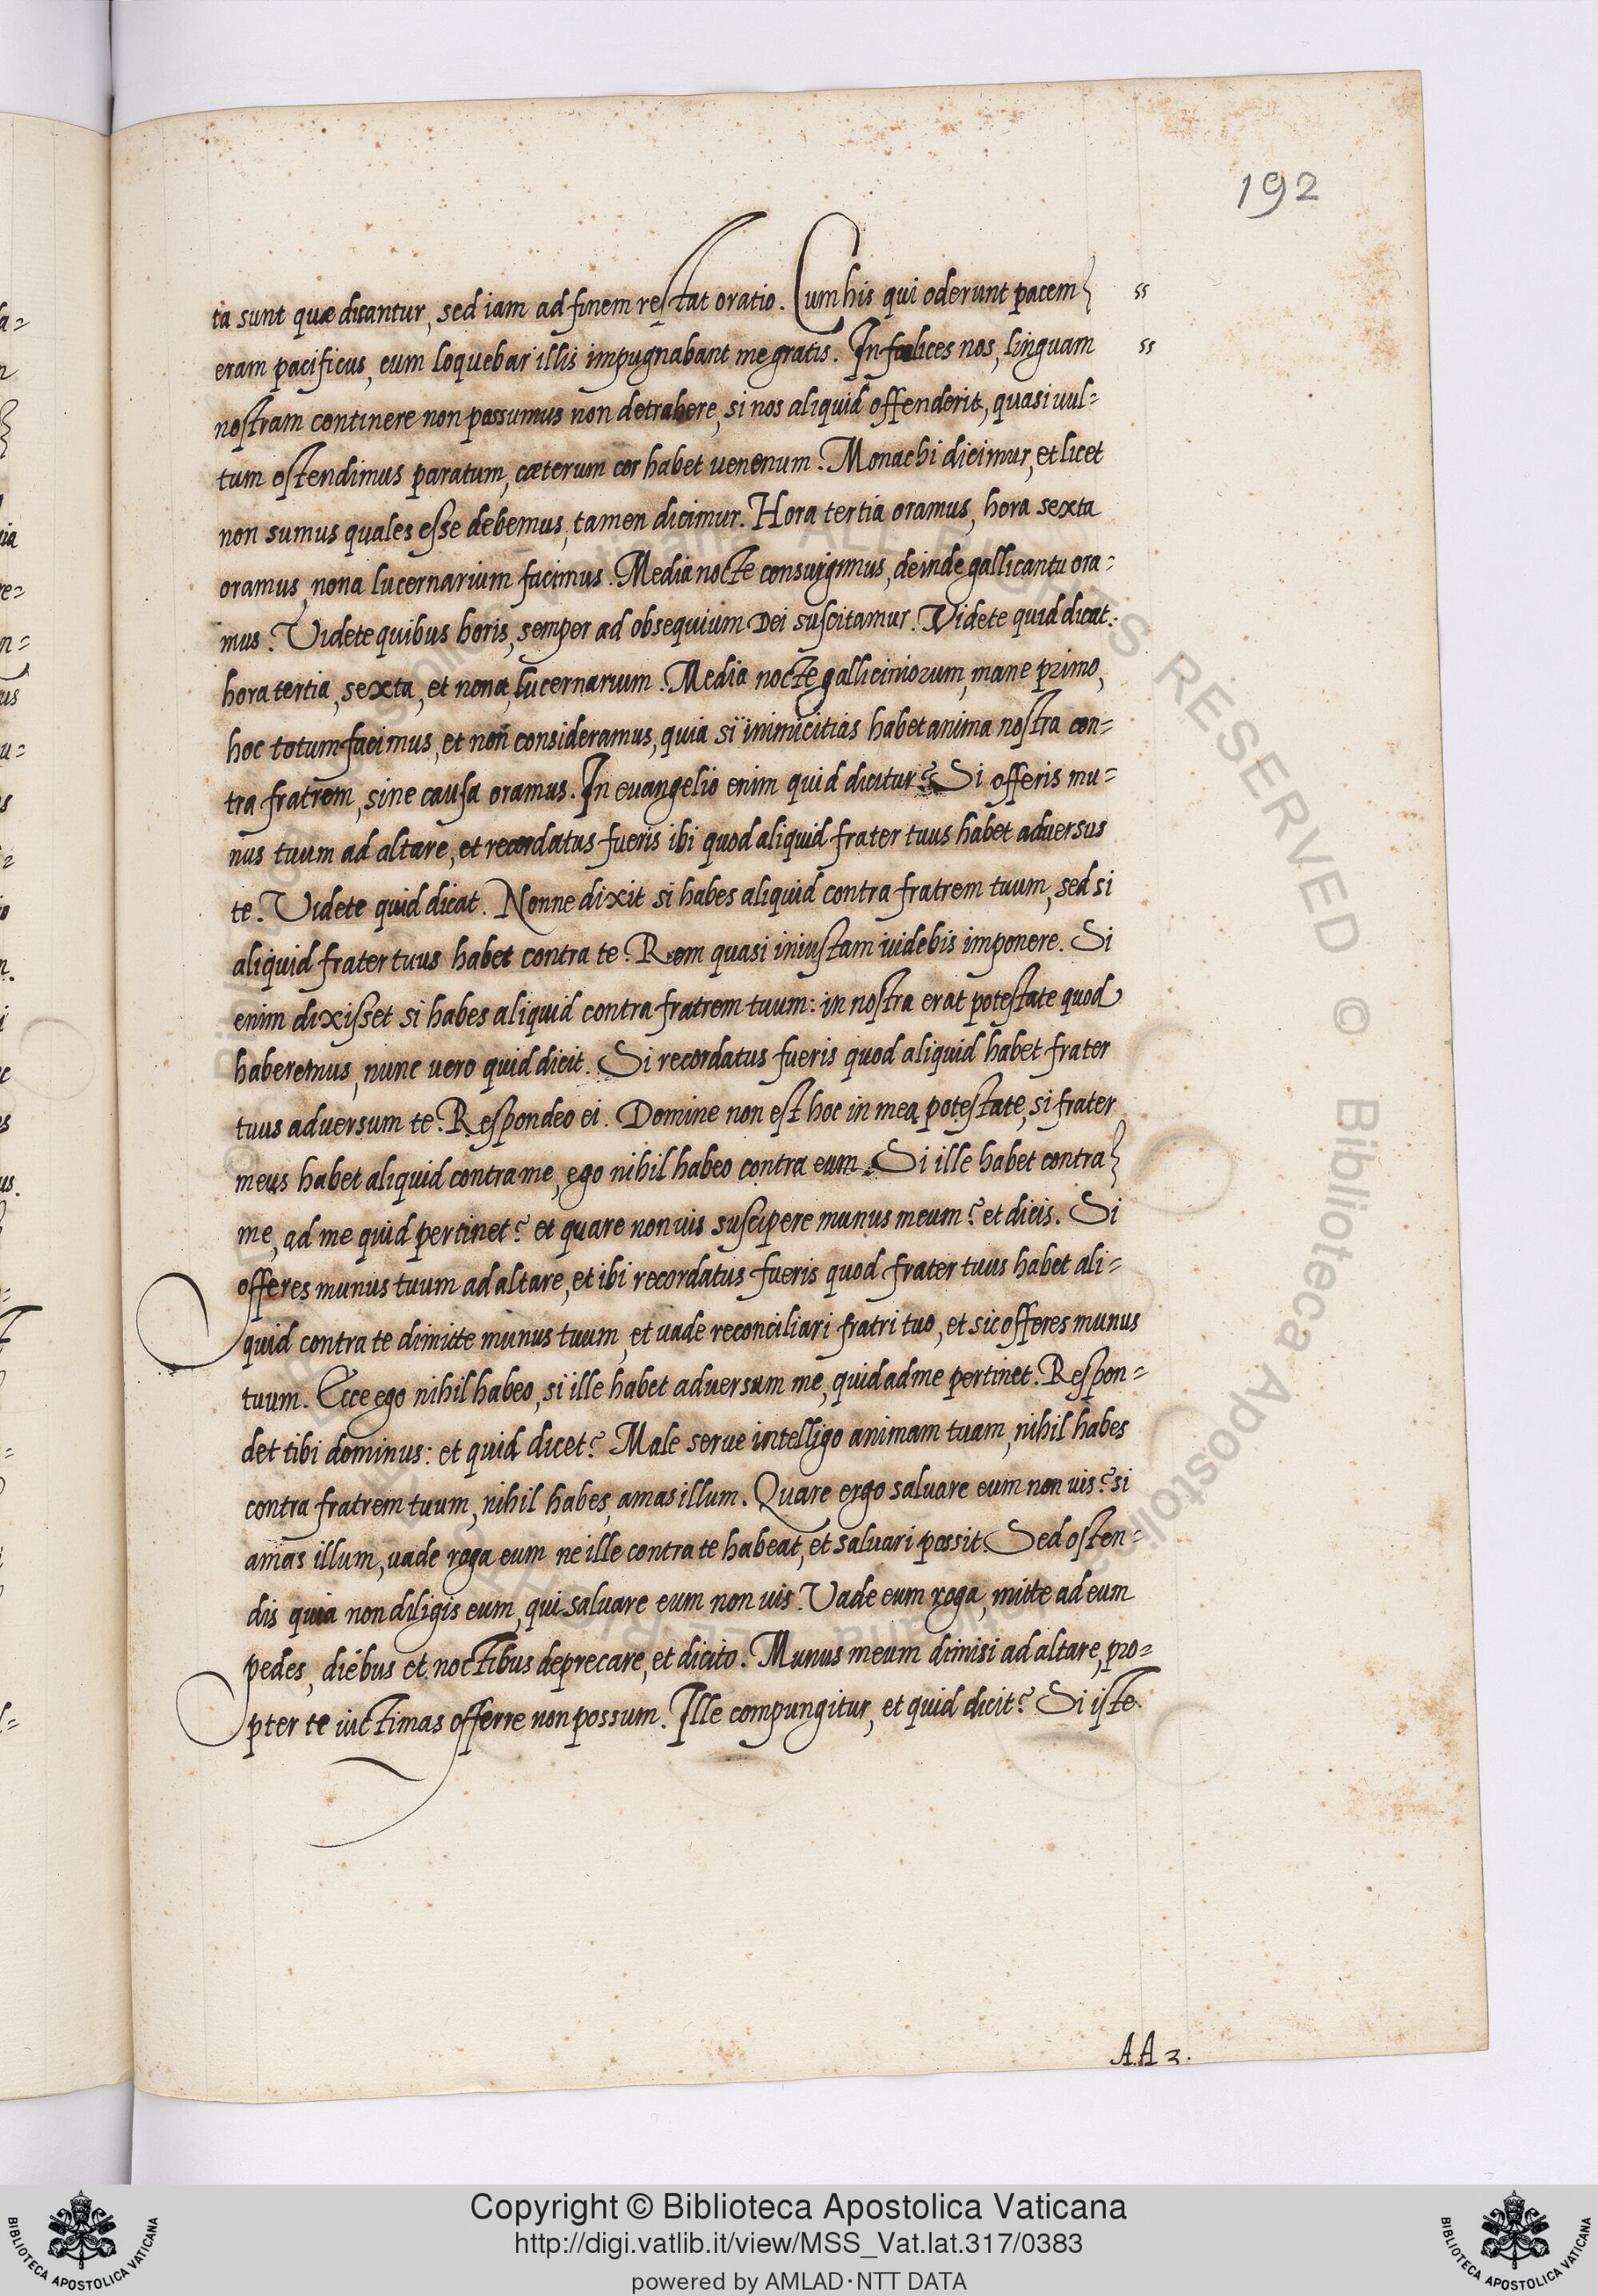 192
ta sunt quæ dicantur, sed iam ad finem restat oratio. Cum his qui oderunt pacem
eram pacificus, cum loquebar illis impugnabant me gratis. Infœlices nos, linguam
nostram continere non possumus non detrahere, si nos aliquid offenderit, quasi uul=
tum ostendimus paratum, cæterum cor habet uenenum. Monachi dicimur, et licet
non sumus quales esse debemus, tamen dicimur. Hora tertia oramus, hora sexta
oramus, nona lucernarium facimus. Media nocte consurgimus, deinde gallicantu ora=
mus. Videte quibus horis, semper ad obsequium Dei suscitamur. Videte quid dicat.
hora tertia, sexta, et nona, lucernarum. Media nocte galliciniorum, mane primo,
hoc totum facimus, et non consideramus, quia si inimicitias habet anima nostra con=
tra fratrem, sine causa oramus. In euangelio enim quid dicitur? Si offeris mu=
nus tuum ad altare, et recordatus fueris ibi quod aliquid frater tuus habet aduersus
te. Videte quid dicat. Nonne dixit si habes aliquid contra fratrem tuum, sed si
aliquid frater tuus habet contra te. Rem quasi iniustam uidebis imponere. Si
enim dixisset si habes aliquid contra fratrem tuum: in nostra erat potestate quod
haberemus, nunc uero quid dicit. Si recordatus fueris quod aliquid habet frater
tuus aduersum te. Respondeo ei. Domine non est hoc in mea potestate, si frater
meus habet aliquid contra me, ego nihil habeo contra eum. Si ille habet contra
me, ad me quid pertinet? et quare non uis suscipere munus meum? et dicis. Si
offeres munus tuum ad altare, et ibi recordatus fueris quod frater tuus habet ali=
quid contra te dimitte munus tuum, et uade reconciliari fratri tuo, et sic offeres munus
tuum. Ecce ego nihil habeo, si ille habet aduersum me, quid ad me pertinet. Respon=
det tibi dominus: et quid dicet? Male serue intelligo animam tuam, nihil habes
contra fratrem tuum, nihil habes, amas illum. Quare ergo saluare eum non uis? si
amas illum, uade roga eum ne ille contra te habeat, et saluari possit. Sed osten=
dis quia non diligis eum, qui saluare eum non uis. Vade eum roga, mitte ad eum
pedes, diebus et noctibus deprecare, et dicito. Munus meum dimisi ad altare, pro=
pter te uictimas offerre non possum. Ille compungitur, et quid dicit? Si iste
AA 3.
Copyright © Biblioteca Apostolica Vaticana
http://digi.vatlib.it/view/MSS_Vat.lat.317/0383
powered by AMLAD·NTT DATA
BIBLIOTECA APOSTOLICA VATICANA
BIBLIOTECA APOSTOLICA VATICANA